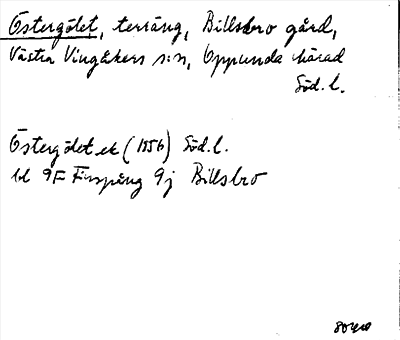 Östergölet, terräng, Billsbro gård,
Västra Vingåkers s:n, Oppunda härad
Söd. l.
Östergölet ek (1956) Söd. l.
bl 9F Finspång 9j Billsbro